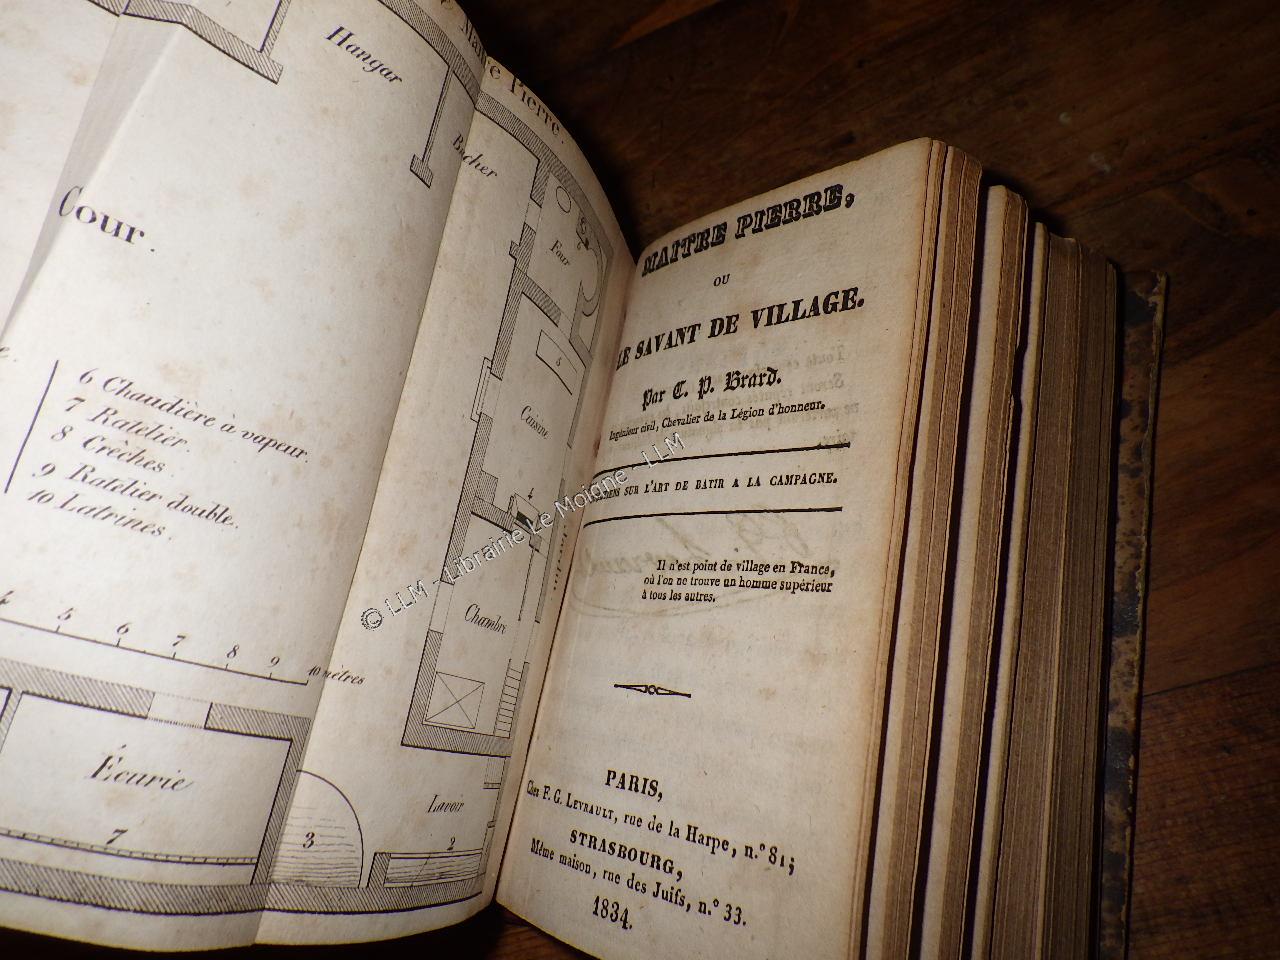 Maître Pierre.
Hangar
Bucher
Four
Cour.
Cuisine
6 Chaudière à vapeur.
7 Ratelier.
8 Crêches.
9 Ratelier double.
10 Latrines.
Chambre
4 5 6 7 8 9 10 mètres
Écurie
7
3
Lavoir
2
MAITRE PIERRE,
OU
LE SAVANT DE VILLAGE.
Par C. P. Brard.
Ingénieur civil, Chevalier de la Légion d'honneur.
SUR L'ART DE BATIR A LA CAMPAGNE.
Il n'est point de village en France,
où l'on ne trouve un homme supérieur
à tous les autres.
PARIS,
Chez F. G. LEVRAULT, rue de la Harpe, n.º 81;
STRASBOURG,
Même maison, rue des Juifs, n.º 33.
1834.
© LLM - Librairie Le Moigne - LLM